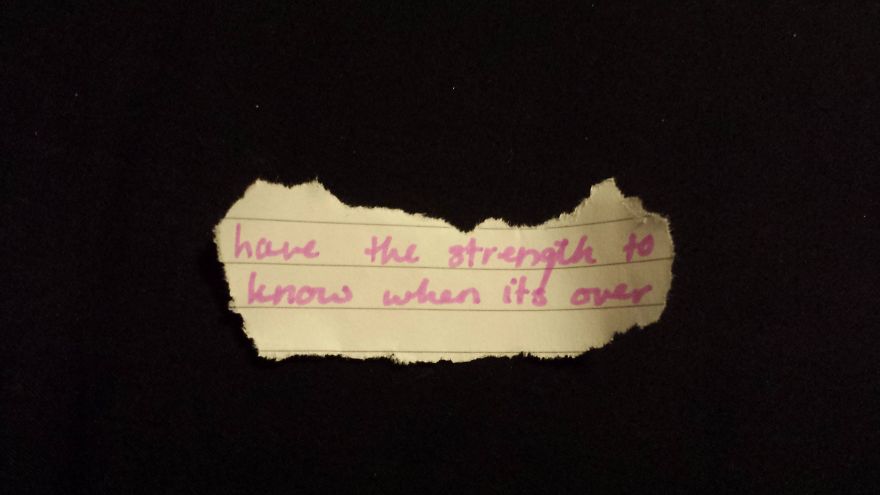 have the strength to
know when its over